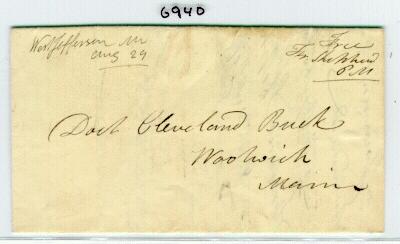 6940
West Jefferson Me
Aug 29
Free
Fr. Shepherd
P.M
Doct Cleveland Buck
Woolwich
Maine